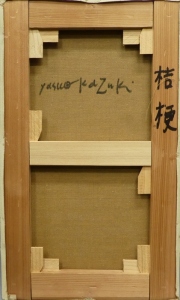 yasuo KaZuki
桔梗